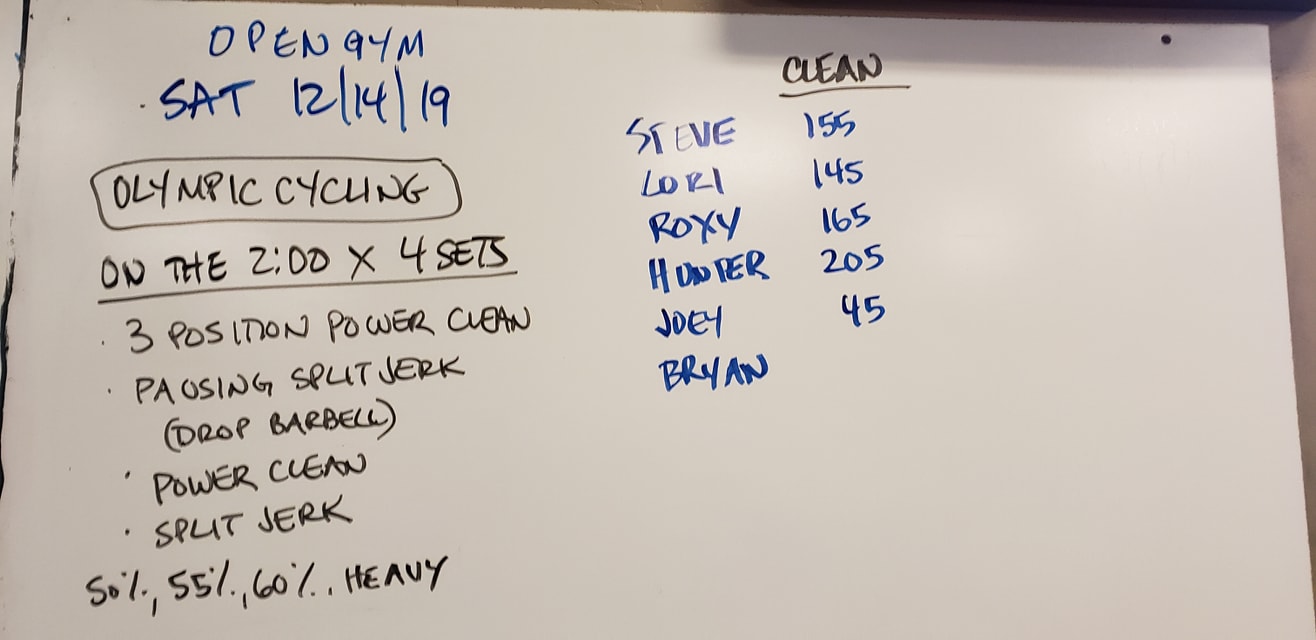 OPEN GYM
SAT 12/14/19
OLYMPIC CYCLING
ON THE 2:00 X 4 SETS
· 3 POSITION POWER CLEAN
· PAUSING SPLIT JERK
(DROP BARBELL)
· POWER CLEAN
· SPLIT JERK
50%, 55%, 60%. HEAVY
CLEAN
STEVE 155
LORI 145
ROXY 165
HUNTER 205
JOEY 45
BRYAN